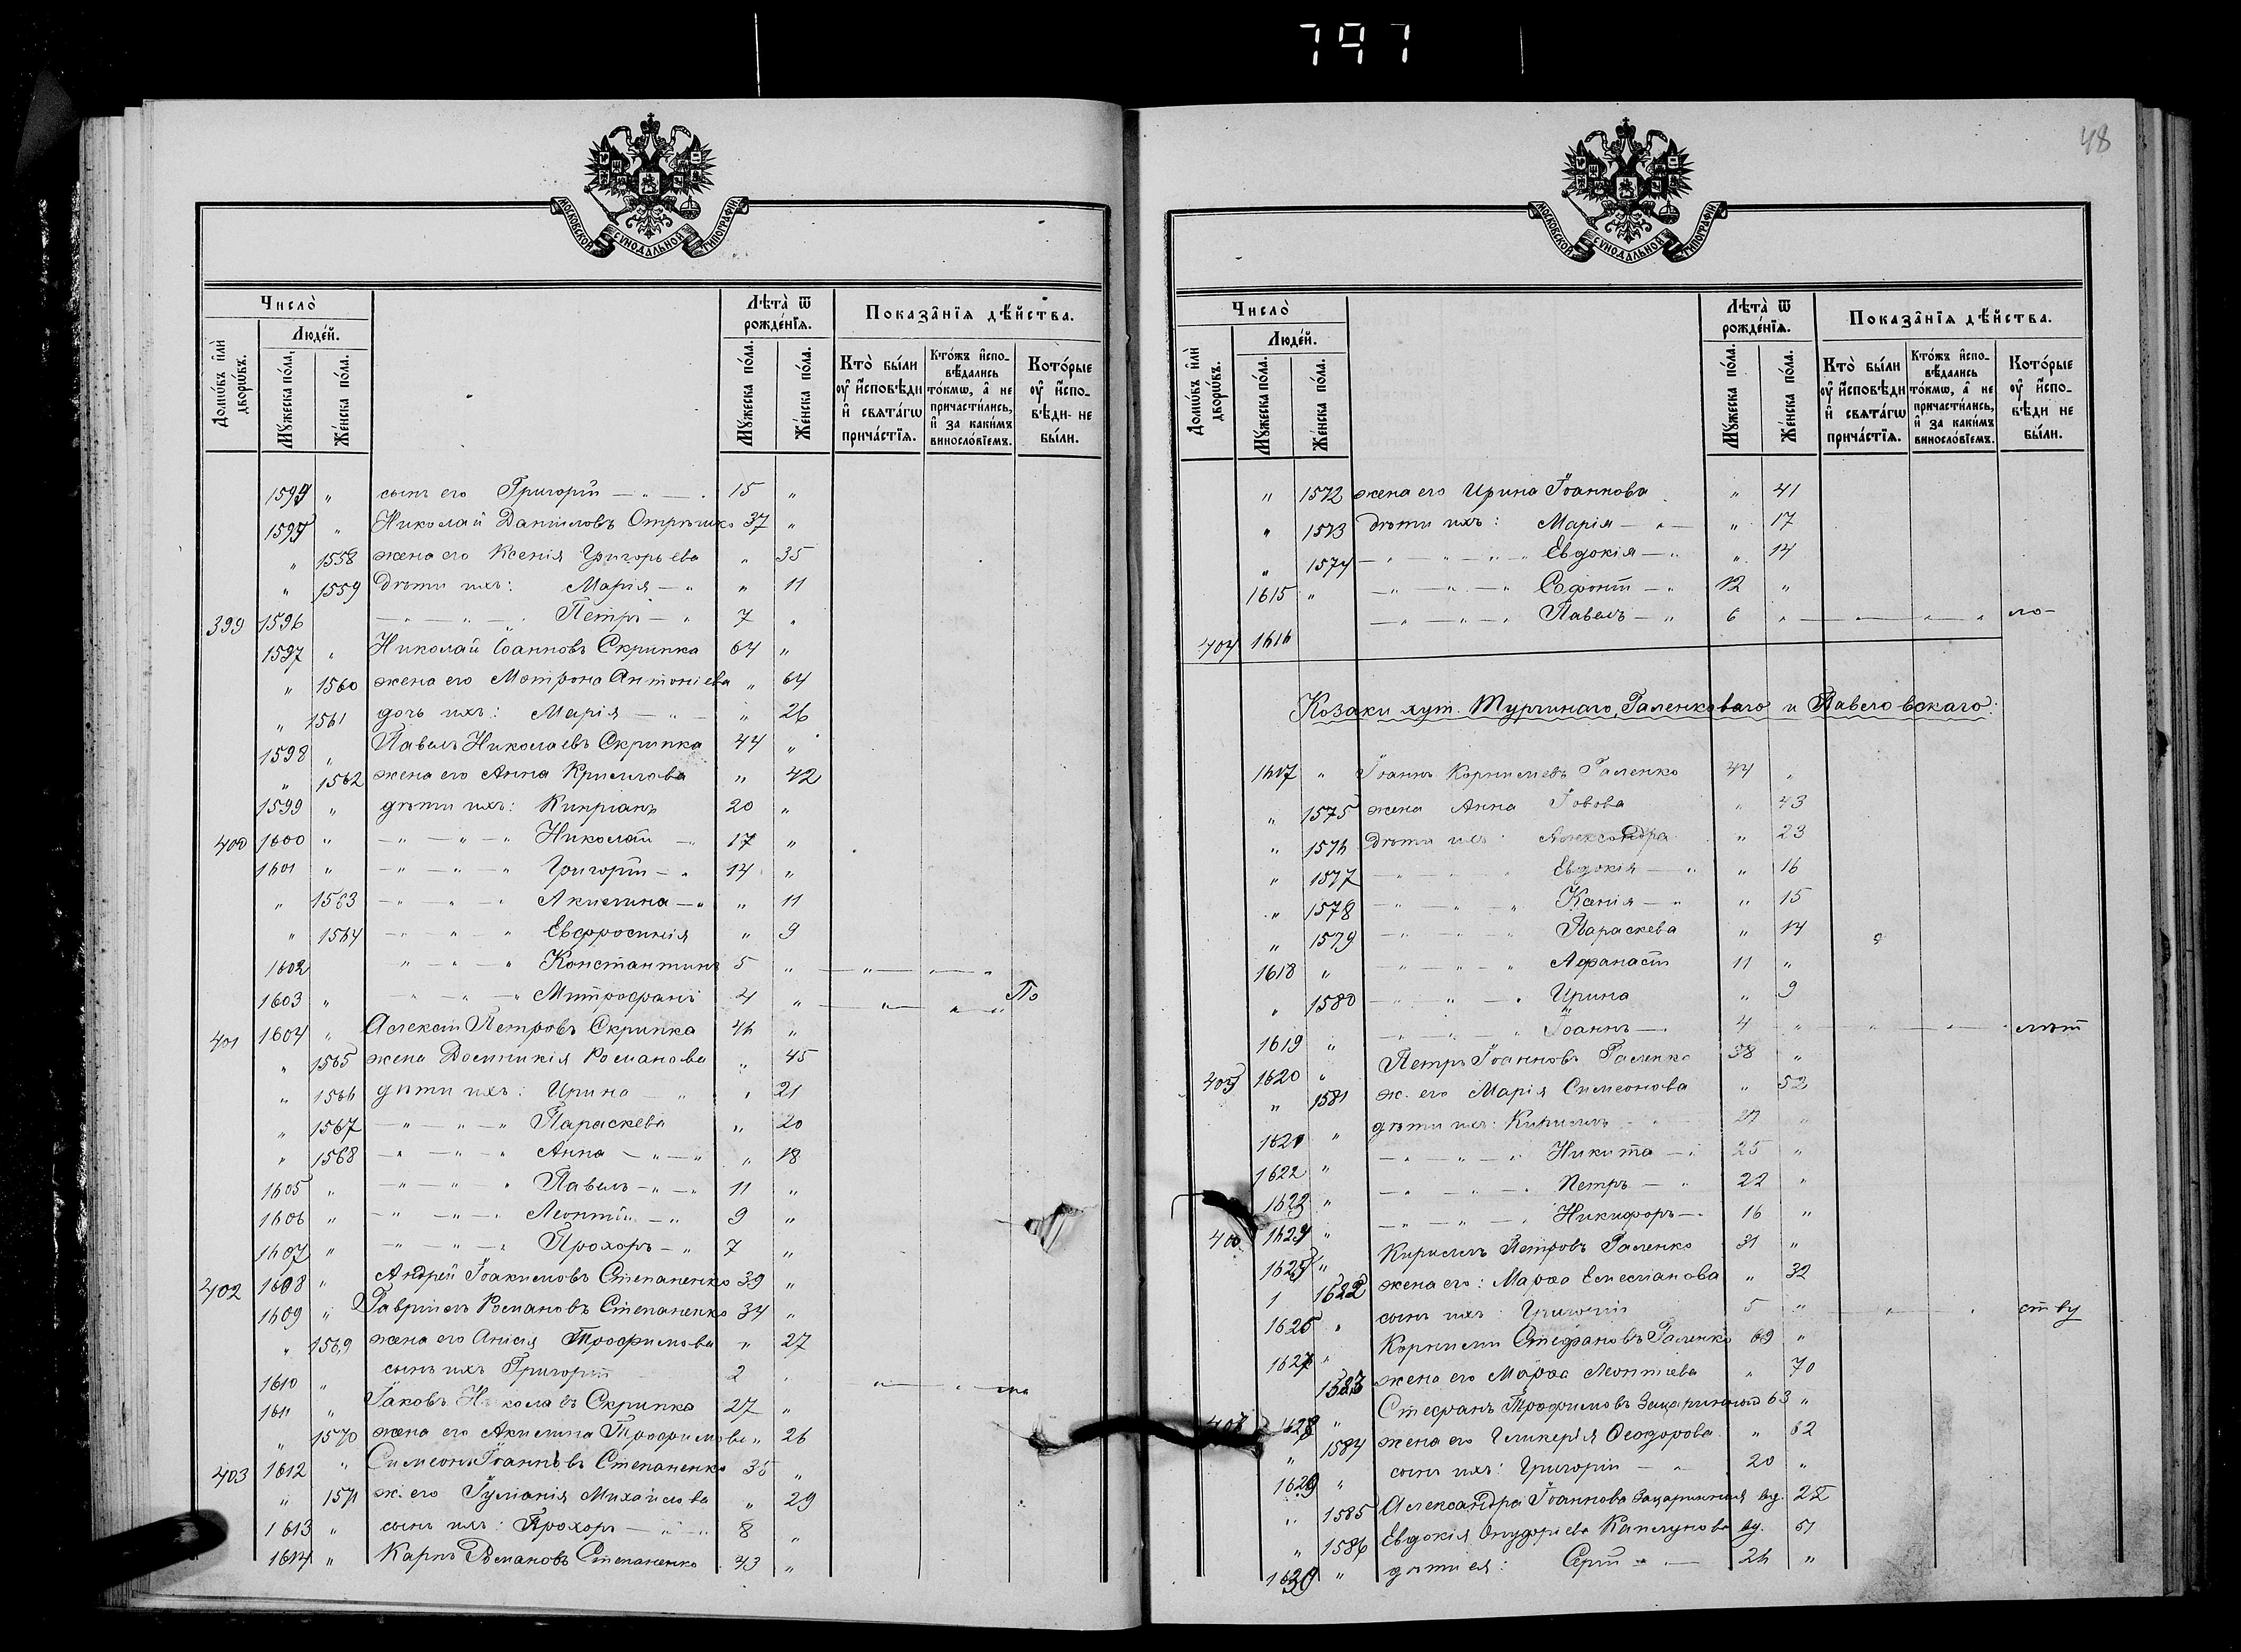 797
МОСКОВСКОЙ СѴНОДАЛЬНОЙ ТИПОГРАФІИ
Число̀
Людѐй.
Домѡ́въ и҆лѝ дворѡ́въ.
Мꙋ́жеска по́ла.
Же́нска по́ла.
Лѣ́та ѿ рожде́нїѧ.
Мꙋ́жеска по́ла.
Же́нска по́ла.
Показа̑нїѧ дѣ́йства.
Кто̀ бы́ли ᲂу҆ и҆́сповѣди и҆ свѧта́гѡ прича́стїѧ.
Кто́жъ и҆сповѣ́дались то́кмѡ, а҆ не причасти́лись, и҆ за каки́мъ винosло́вїемъ.
Кото́рые ᲂу҆ и҆́сповѣди не бы́ли.
1594 " сынъ его Григорій — " — 15 "
1595 " Николай Даниловъ Отрѣшко 37 "
" 1558 жена его Ксенія Григорьева " 35
" 1559 Дѣти ихъ: Марія — " " 11
399 1596 — " — " — " Петръ — " 7 "
1597 " Николай Іоанновъ Скрипка 64 "
" 1560 жена его Мотрона Антоніева " 64
" 1561 дочь ихъ: Марія — " — " 26
1598 " Павелъ Николаевъ Скрипка 44 "
" 1562 жена его Анна Кириллова " 42
1599 " дѣти ихъ: Кипріанъ 20 "
400 1600 " — " — " — " Николай — " 17 "
1601 " — " — " — " Григорій — " 14 "
" 1563 — " — " — " Акилина — " " 11
" 1564 — " — " — " Евфросинія " 9
1602 " — " — " Константинъ 5 " — " — " — "
1603 " — " — " — " Митрофанъ 4 " — " — " — " По
401 1604 " Алексѣй Петровъ Скрипка 46 "
" 1565 жена Домникія Романова " 45
" 1566 дѣти ихъ: Ирина — " " 21
" 1567 — " — " — " Параскева " 20
" 1568 — " — " — " Анна — " — " " 18
1605 " — " — " — " Павелъ — " — " 11 "
1606 " — " — " — " Леонтій — " 9 "
1607 " — " — " — " Прохоръ — " 7 "
402 1608 " Андрей Іоакимовъ Степаненко 39 "
1609 " Гавріилъ Романовъ Степаненко 34 "
" 1569 жена его Анисія Трофимова " 27
1610 " сынъ ихъ Григорій 2 " — " — "
1611 " Іаковъ Николаевъ Скрипка 27 "
" 1570 жена его Акилина Трофимова " 26
403 1612 " Симеонъ Іоанновъ Степаненко 35 "
" 1571 ж. его Іуліанія Михайлова " 29
1613 " сынъ ихъ: Прохоръ — " — " 8 "
1614 " Карпъ Романовъ Степаненко 43 "
48
МОСКОВСКОЙ СѴНОДАЛЬНОЙ ТИПОГРАФІИ
Число̀
Людѐй.
Домѡ́въ и҆лѝ дворѡ́въ.
Мꙋ́жеска по́ла.
Же́нска по́ла.
Лѣ́та ѿ рожде́нїѧ.
Мꙋ́жеска по́ла.
Же́нска по́ла.
Показа̑нїѧ дѣ́йства.
Кто̀ бы́ли ᲂу҆ и҆́сповѣди и҆ свѧта́гѡ прича́стїѧ.
Кто́жъ и҆сповѣ́дались то́кмѡ, а҆ не причасти́лись, и҆ за каки́мъ винosло́вїемъ.
Кото́рые ᲂу҆ и҆́сповѣди не бы́ли.
" 1572 жена его Ирина Іоаннова " 41
" 1573 дѣти ихъ: Марія — " — " 17
" 1574 — " — " — " Евдокія — " " 14
1615 " — " — " — " — " 12 "
404 1616 — " — " — " Павелъ — " 6 " — " — " — " ло-
Козаки хут. Тургинаго, Галенковаго и Павеловскаго:
1617 " Іоаннъ Корниліевъ Галенко 44 "
" 1575 жена Анна Іовова " 43
" 1576 Дѣти ихъ: Александра " 23
" 1577 — " — " — " Евдокія — " " 16
" 1578 — " — " — " Ксенія — " " 15
" 1579 — " — " — " Параскева " 14
1618 " — " — " — " Афанасій 11 "
" 1580 — " — " — " Ирина " 9
1619 " — " — " — " Іоаннъ — 4 " — " — " — " лѣт
405 1620 " Петръ Іоанновъ Галенко 58 "
" 1581 ж. его Марія Симеонова " 52
1621 " дѣти ихъ: Кириллъ — " — 27 "
1622 " — " — " — " Никита — " 25 "
1623 " — " — " — " Петръ — " 22 "
406 1624 " — " — " — " Никифоръ — " 16 "
1625 " Кириллъ Петровъ Галенко 31 "
1 1582 жена его: Марѳа Емеліанова " 32
1626 " сынъ ихъ: Григорій 5 " — " — " ству
1627 " Корнилій Стефановъ Галенко 69 "
1583 жена его Марѳа Леонтіева " 70
407 1628 " Стефанъ Трофимовъ 63 "
" 1584 жена его Гликерія Ѳеодорова " 62
1629 " сынъ ихъ: Григорій — " 20 "
" 1585 Александра Іоаннова вд. 22
" 1586 Евдокія Капелунова вд. 51
1630 " дѣти ея: — " — 26 "